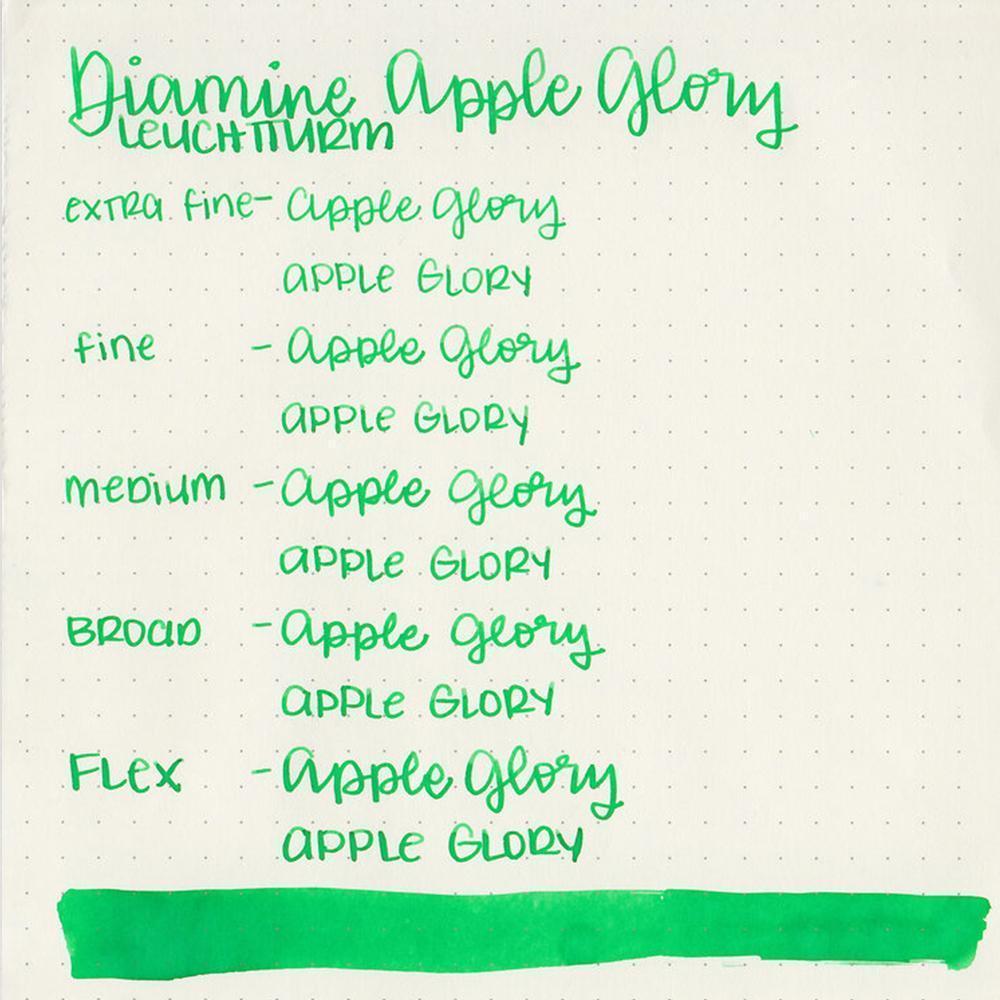 Diamine Apple Glory
LEUCHTTURM
EXTRA fine - Apple Glory
APPLE GLORY
fine - Apple Glory
APPLE GLORY
MEDIUM - Apple Glory
APPLE GLORY
BROAD - Apple Glory
APPLE GLORY
FLEX - Apple Glory
APPLE GLORY